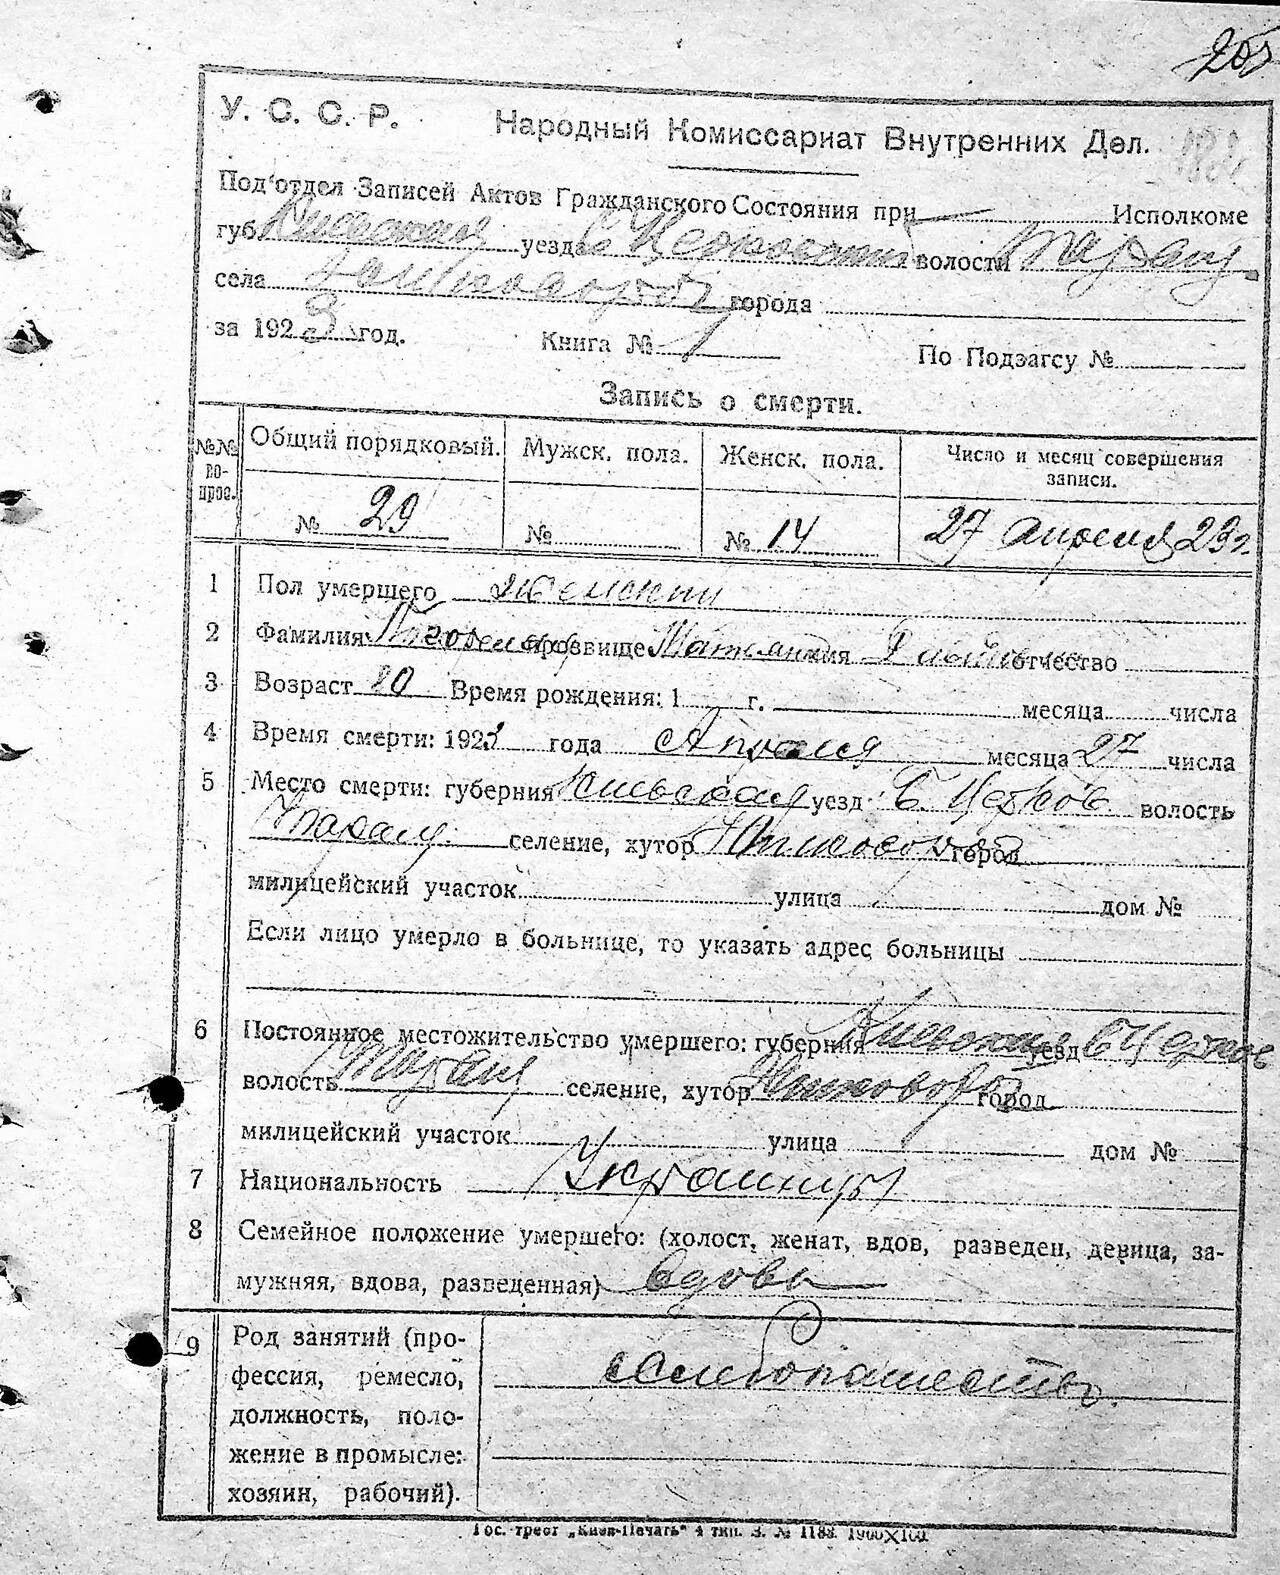 У. С. С. Р. Народный Комиссариат Внутренних Дел.
Под'отдел Записей Актов Гражданского Состояния при Исполкоме
губ Киевская уезда Б Церковский волости Таращ.
села города
за 1923 год. Книга № 1 По Подзагсу №
Запись о смерти.
№№ вопрос. Общий порядковый. Мужск. пола. Женск. пола. Число и месяц совершения записи.
№ 29 № № 14 27 апреля 23г.
1 Пол умершего Женский
2 Фамилия прозвище отчество
3 Возраст 80 Время рождения: 1 г. месяца числа
4 Время смерти: 1923 года Апреля месяца 27 числа
5 Место смерти: губерния Киевская уезд Б. Церков. волость
Таращ. селение, хутор город
милицейский участок улица дом №
Если лицо умерло в больнице, то указать адрес больницы
6 Постоянное местожительство умершего: губерния Киевская уезд Б Церков
волость Таращ селение, хутор город
милицейский участок улица дом №
7 Национальность
8 Семейное положение умершего: (холост, женат, вдов, разведен, девица, за-
мужняя, вдова, разведенная) вдова
9 Род занятий (про-
фессия, ремесло,
должность, поло-
жение в промысле:
хозяин, рабочий).
хлебопашество.
Гос. трест „Киев-Печать" 4 тип. З. № 1188. 1900×100.